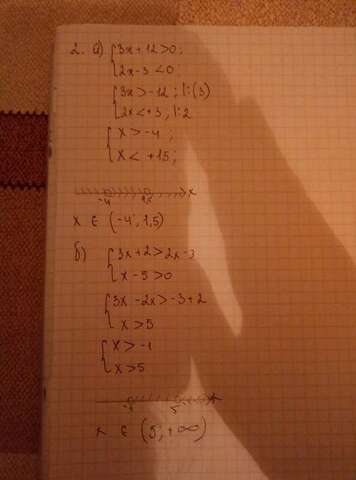 2. а) { 3x + 12 > 0;
2x - 3 < 0;
{ 3x > -12; |:(3)
2x < +3; |:2
{ x > -4;
x < +1,5;
-4 1,5 x
x ∈ (-4; 1,5)
б) { 3x + 2 > 2x - 3
x - 5 > 0
{ 3x - 2x > -3 + 2
x > 5
{ x > -1
x > 5
-1 5 x
x ∈ (5; +∞)